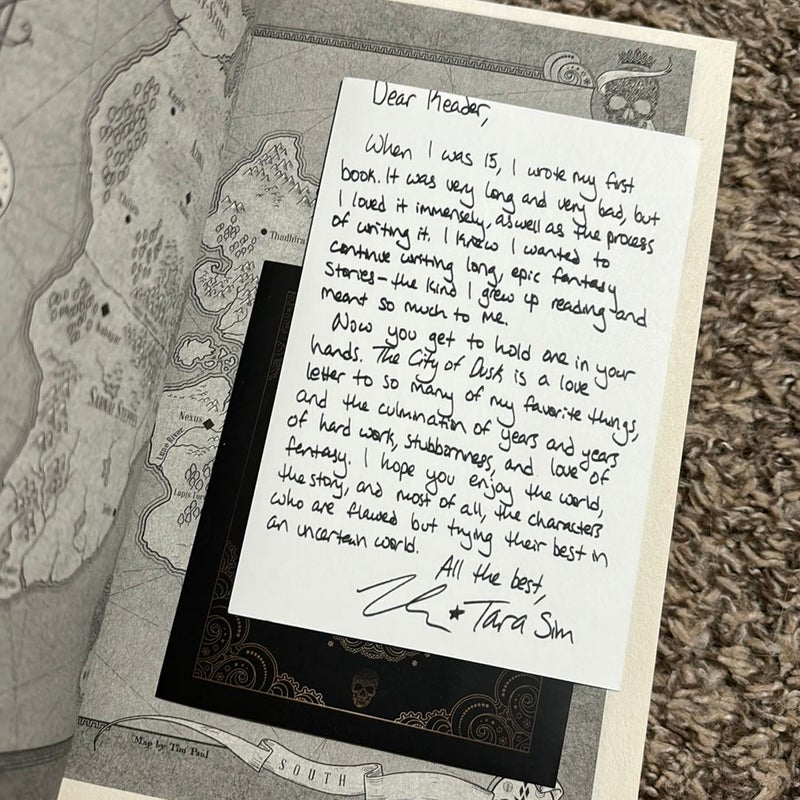 Dear Reader,
When I was 15, I wrote my first
book. It was very long and very bad, but
I loved it immensely, as well as the process
of writing it. I knew I wanted to
continue writing long, epic fantasy
stories - the kind I grew up reading and
meant so much to me.
Now you get to hold one in your
hands. The City of Dusk is a love
letter to so many of my favorite things,
and the culmination of years and years
of hard work, stubbornness, and love of
fantasy. I hope you enjoy the world,
the story, and most of all, the characters
who are flawed but trying their best in
an uncertain world.
All the best,
Tara Sim
Thadhira
Nexus
Map by Tim Paul
SOUTH